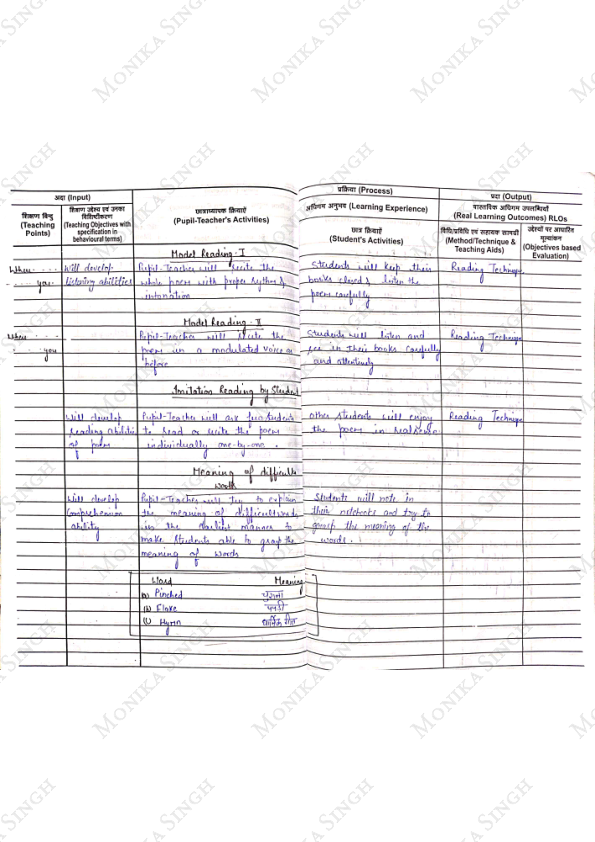 अदा (Input)
प्रक्रिया (Process)
प्रदा (Output)
शिक्षण बिन्दु
(Teaching
Points)
शिक्षण उद्देश्य एवं उनका
विशिष्टीकरण
(Teaching Objectives with
specification in
behavioural terms)
छात्राध्यापक क्रियाएँ
(Pupil-Teacher's Activities)
अधिगम अनुभव (Learning Experience)
छात्र क्रियाएँ
(Student's Activities)
वास्तविक अधिगम उपलब्धियाँ
(Real Learning Outcomes) RLOs
विधि/प्रविधि एवं सहायक सामग्री
(Method/Technique &
Teaching Aids)
उद्देश्यों पर आधारित
मूल्यांकन
(Objectives based
Evaluation)
Model Reading-I
When ....
.... you
Will develop
listening abilities
Pupil-Teacher will recite the
whole poem with proper rythm &
intonation
Students will keep their
books closed & listen the
poem carefully
Reading Technique
Model Reading-II
When ....
.... you
Pupil-Teacher will recite the
poem in a modulated voice as
before
Students will listen and
see in their books carefully
and attentively
Reading Technique
Imitation Reading by Student
Will develop
reading abilities
of poem
Pupil-Teacher will ask few students
to read or recite the poem
individually one-by-one.
other students will enjoy
the poem in real sense
Reading Technique
Meaning of difficult
words
Will develop
Comprehension
ability
Pupil-Teacher will try to explain
the meaning of difficult words
in the earliest manner to
make students able to grasp the
meaning of words
Students will note in
their notebooks and try to
grasp the meaning of the
words.
Word Meaning
(a) Pinched चुराना
(b)
(c) Hymn धार्मिक गीत
MONIKA SINGH